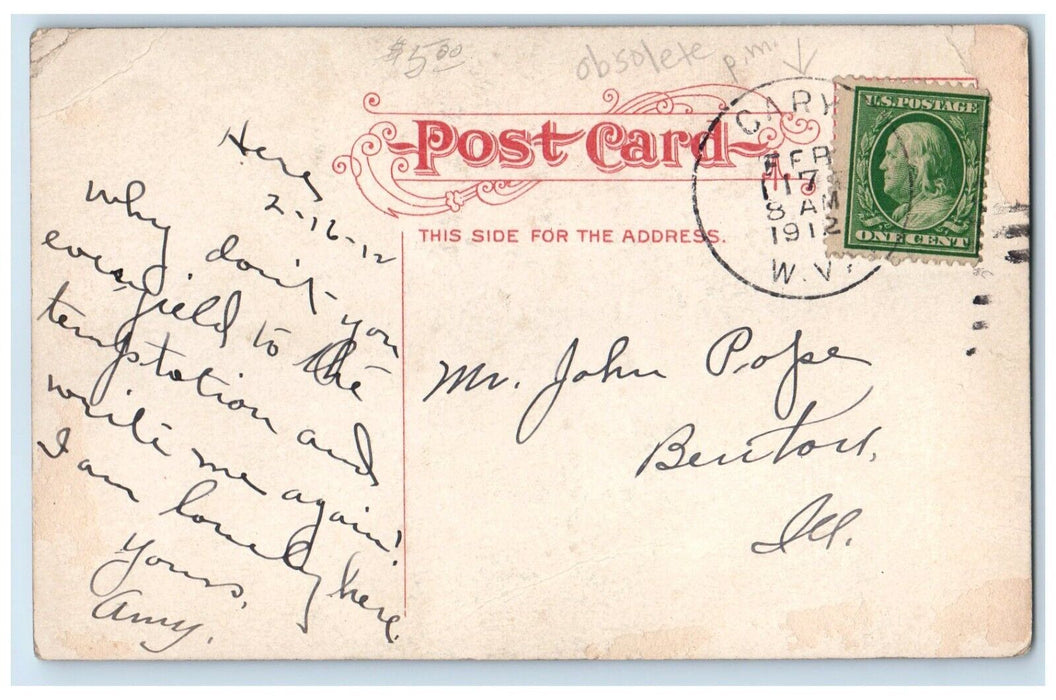 $5.00
obsolete p.m.
Post Card
THIS SIDE FOR THE ADDRESS.
CARY
FEB
17
8 AM
1912
W.V.
U.S. POSTAGE
ONE CENT
Here
2-16-12
Why don't you
ever yield to the
temptation and
write me again!
I am lonely here.
Yours,
Amy.
Mr. John Pope
Benton,
Ill.